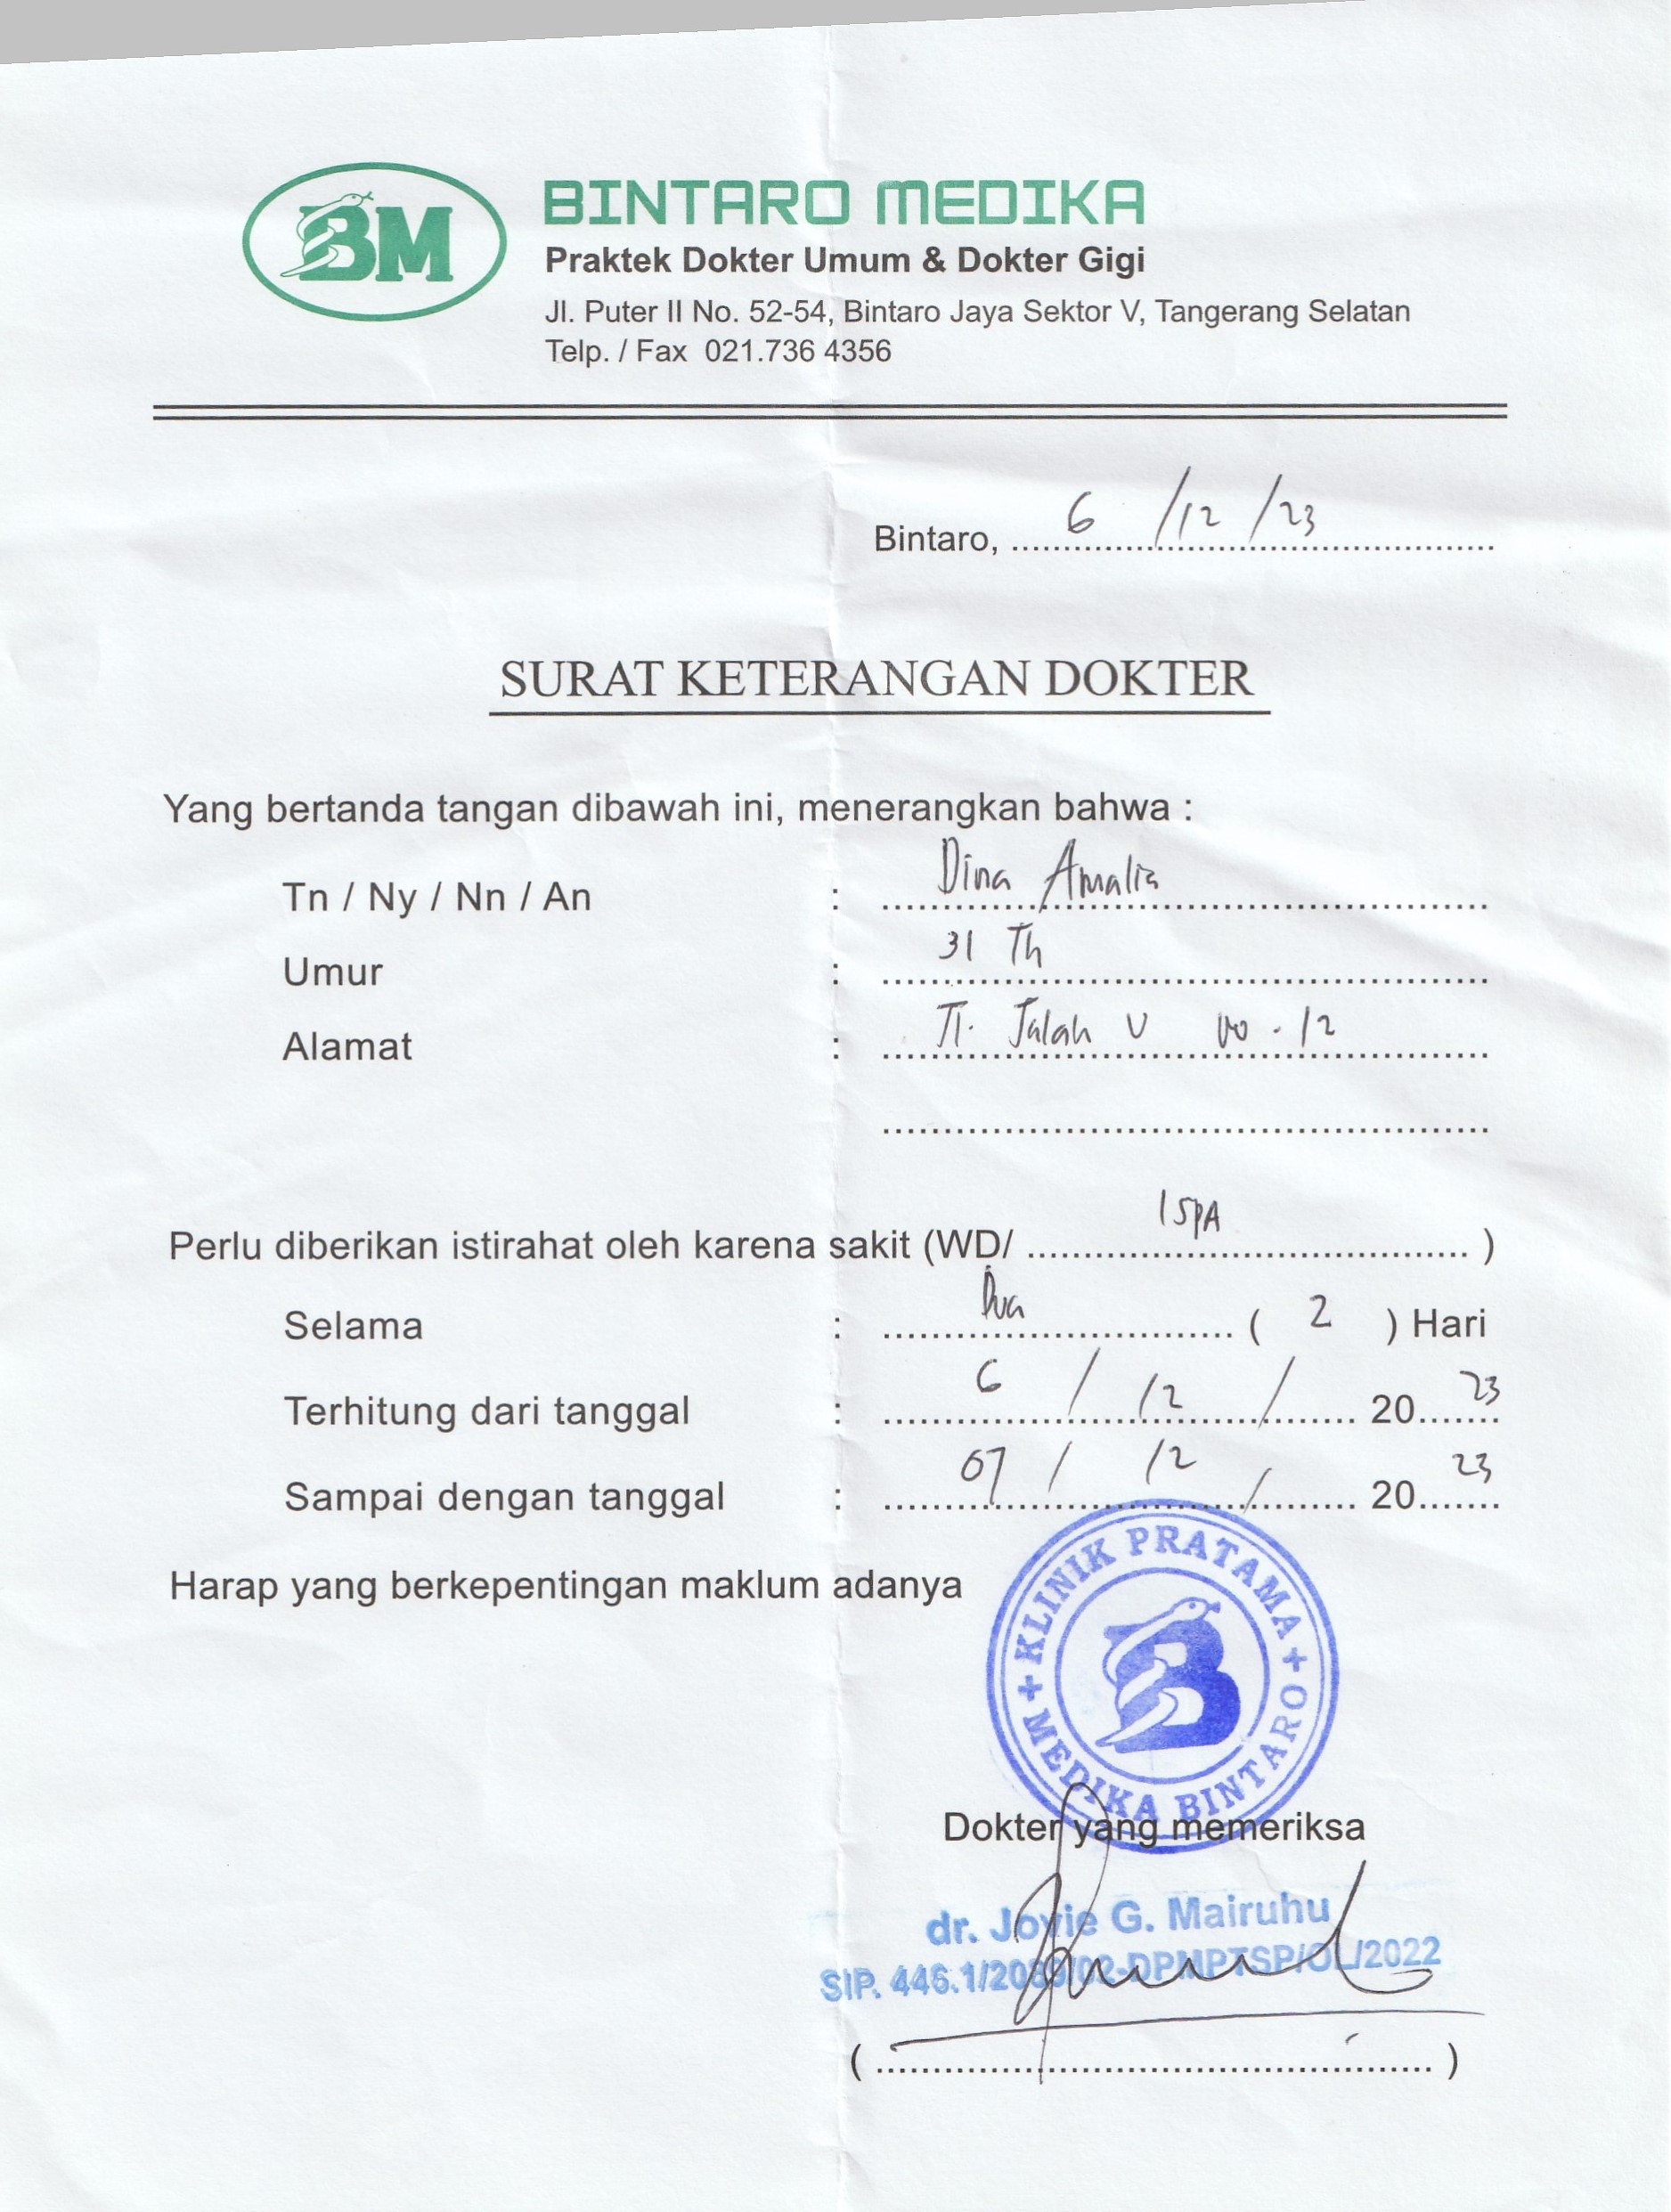 BM
BINTARO MEDIKA
Praktek Dokter Umum & Dokter Gigi
Jl. Puter II No. 52-54, Bintaro Jaya Sektor V, Tangerang Selatan
Telp. / Fax 021.736 4356
Bintaro, 6 / 12 / 23
SURAT KETERANGAN DOKTER
Yang bertanda tangan dibawah ini, menerangkan bahwa :
Tn / Ny / Nn / An : Dina Amalia
Umur : 31 Th
Alamat : Jl. V no. 12
Perlu diberikan istirahat oleh karena sakit (WD/ ISPA )
Selama : Dua ( 2 ) Hari
Terhitung dari tanggal : 6 / 12 / 20 23
Sampai dengan tanggal : 07 / 12 / 20 23
Harap yang berkepentingan maklum adanya
KLINIK PRATAMA
B
MEDIKA BINTARO
Dokter yang memeriksa
dr. Jovie G. Mairuhu
SIP.
( )